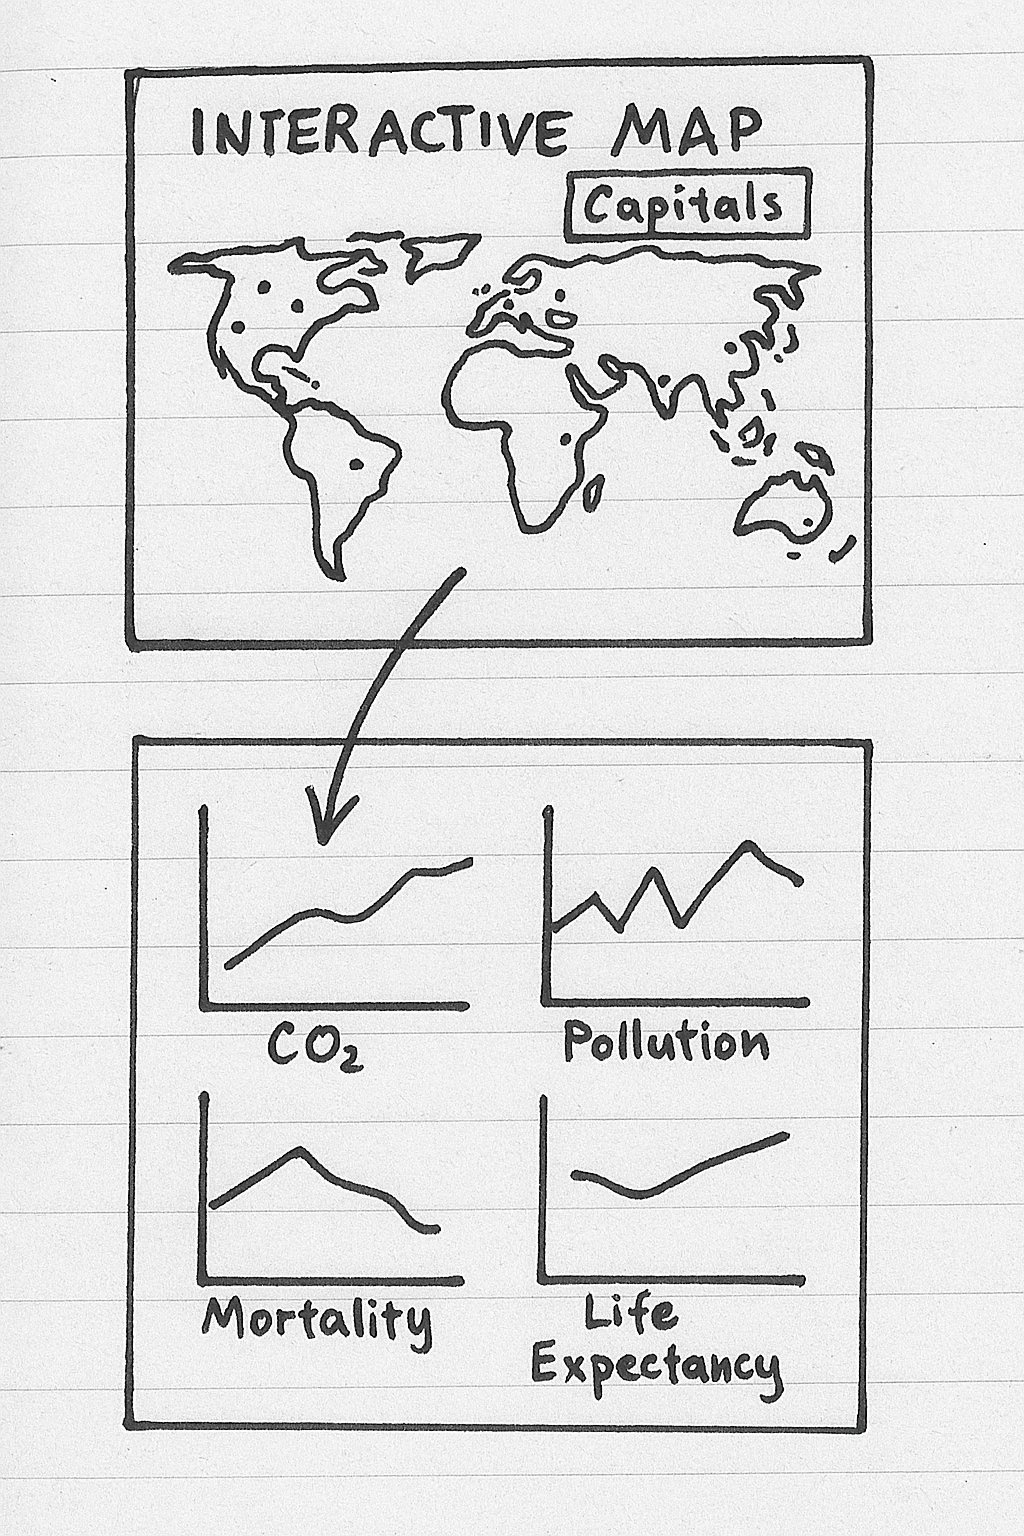 INTERACTIVE MAP
Capitals
CO₂
Pollution
Mortality
Life
Expectancy